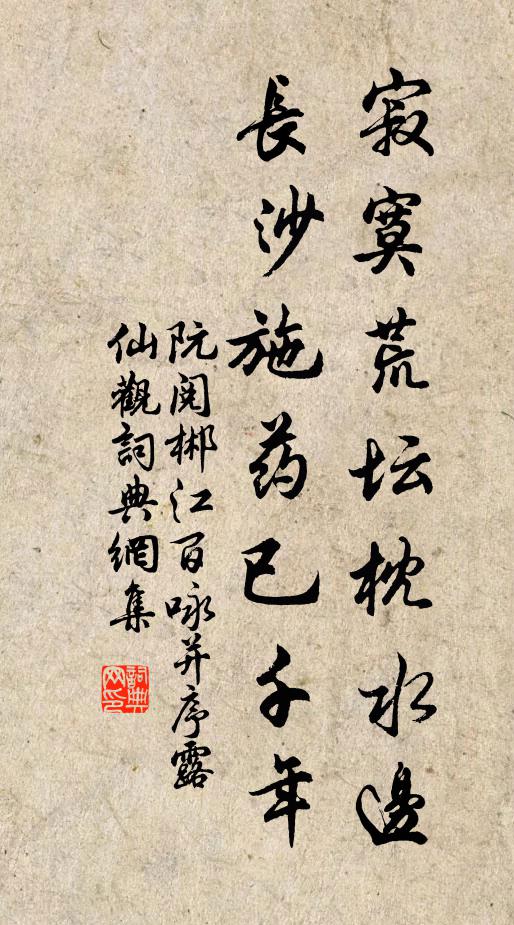 寂寞荒坛枕水邊
長沙施药已千年
阮阅郴江百咏并序露
仙觀詞典網集
詞典网印